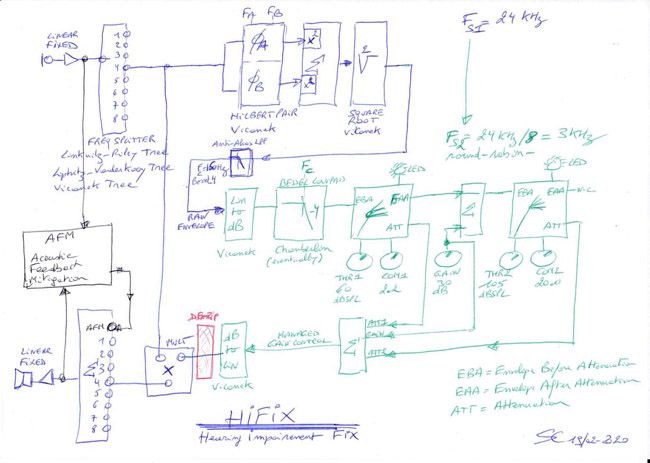 LINEAR
FIXED
1
2
3
4
5
6
7
8
FREQ SPLITTER
Linkwitz-Riley Tree
Lipshitz-Vanderkooy Tree
Vicanek Tree
FA FB
ϕA
ϕB
x²
x²
Σ
HILBERT PAIR
Vicanek
2√
SQUARE
ROOT
Vicanek
FS1 = 24 KHz
FS2 = 24 KHz/8 = 3KHz
round-robin
Anti-Alias LPF
RAW
ENVELOPE
Lin
to
dB
Vicanek
Fc
-4
Chamberlin
(eventually)
LED
EBA
EAA
ATT
THR1
60
dBSPL
COM1
2:1
Σ
GAIN
30
dB
LED
EBA
EAA
N.C
ATT
THR2
105
dBSPL
COM2
AFM
Acoustic
Feedback
Mitigation
LINEAR
FIXED
AFM
1
2
3
4
5
6
7
8
Σ
MULT
X
DEZIP
dB
to
LIN
Vicanek
MANAGED
GAIN CONTROL
Σ
ATT1
GAIN
ATT2
EBA = Envelope Before Attenuation
EAA = Envelope After Attenuation
ATT = Attenuation
HiFiX
Hearing Impairement FiX